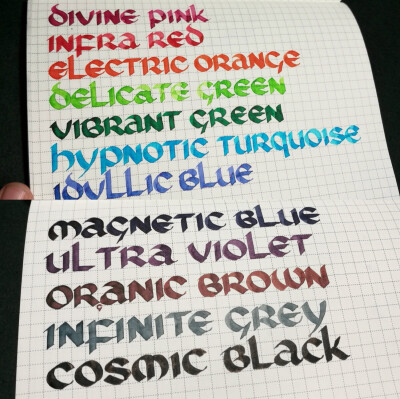 DIVINE PINK
INFRA RED
ELECTRIC ORANGE
DELICATE GREEN
VIBRANT GREEN
HYPNOTIC TURQUOISE
IDYLLIC BLUE
MAGNETIC BLUE
ULTRA VIOLET
ORGANIC BROWN
INFINITE GREY
COSMIC BLACK